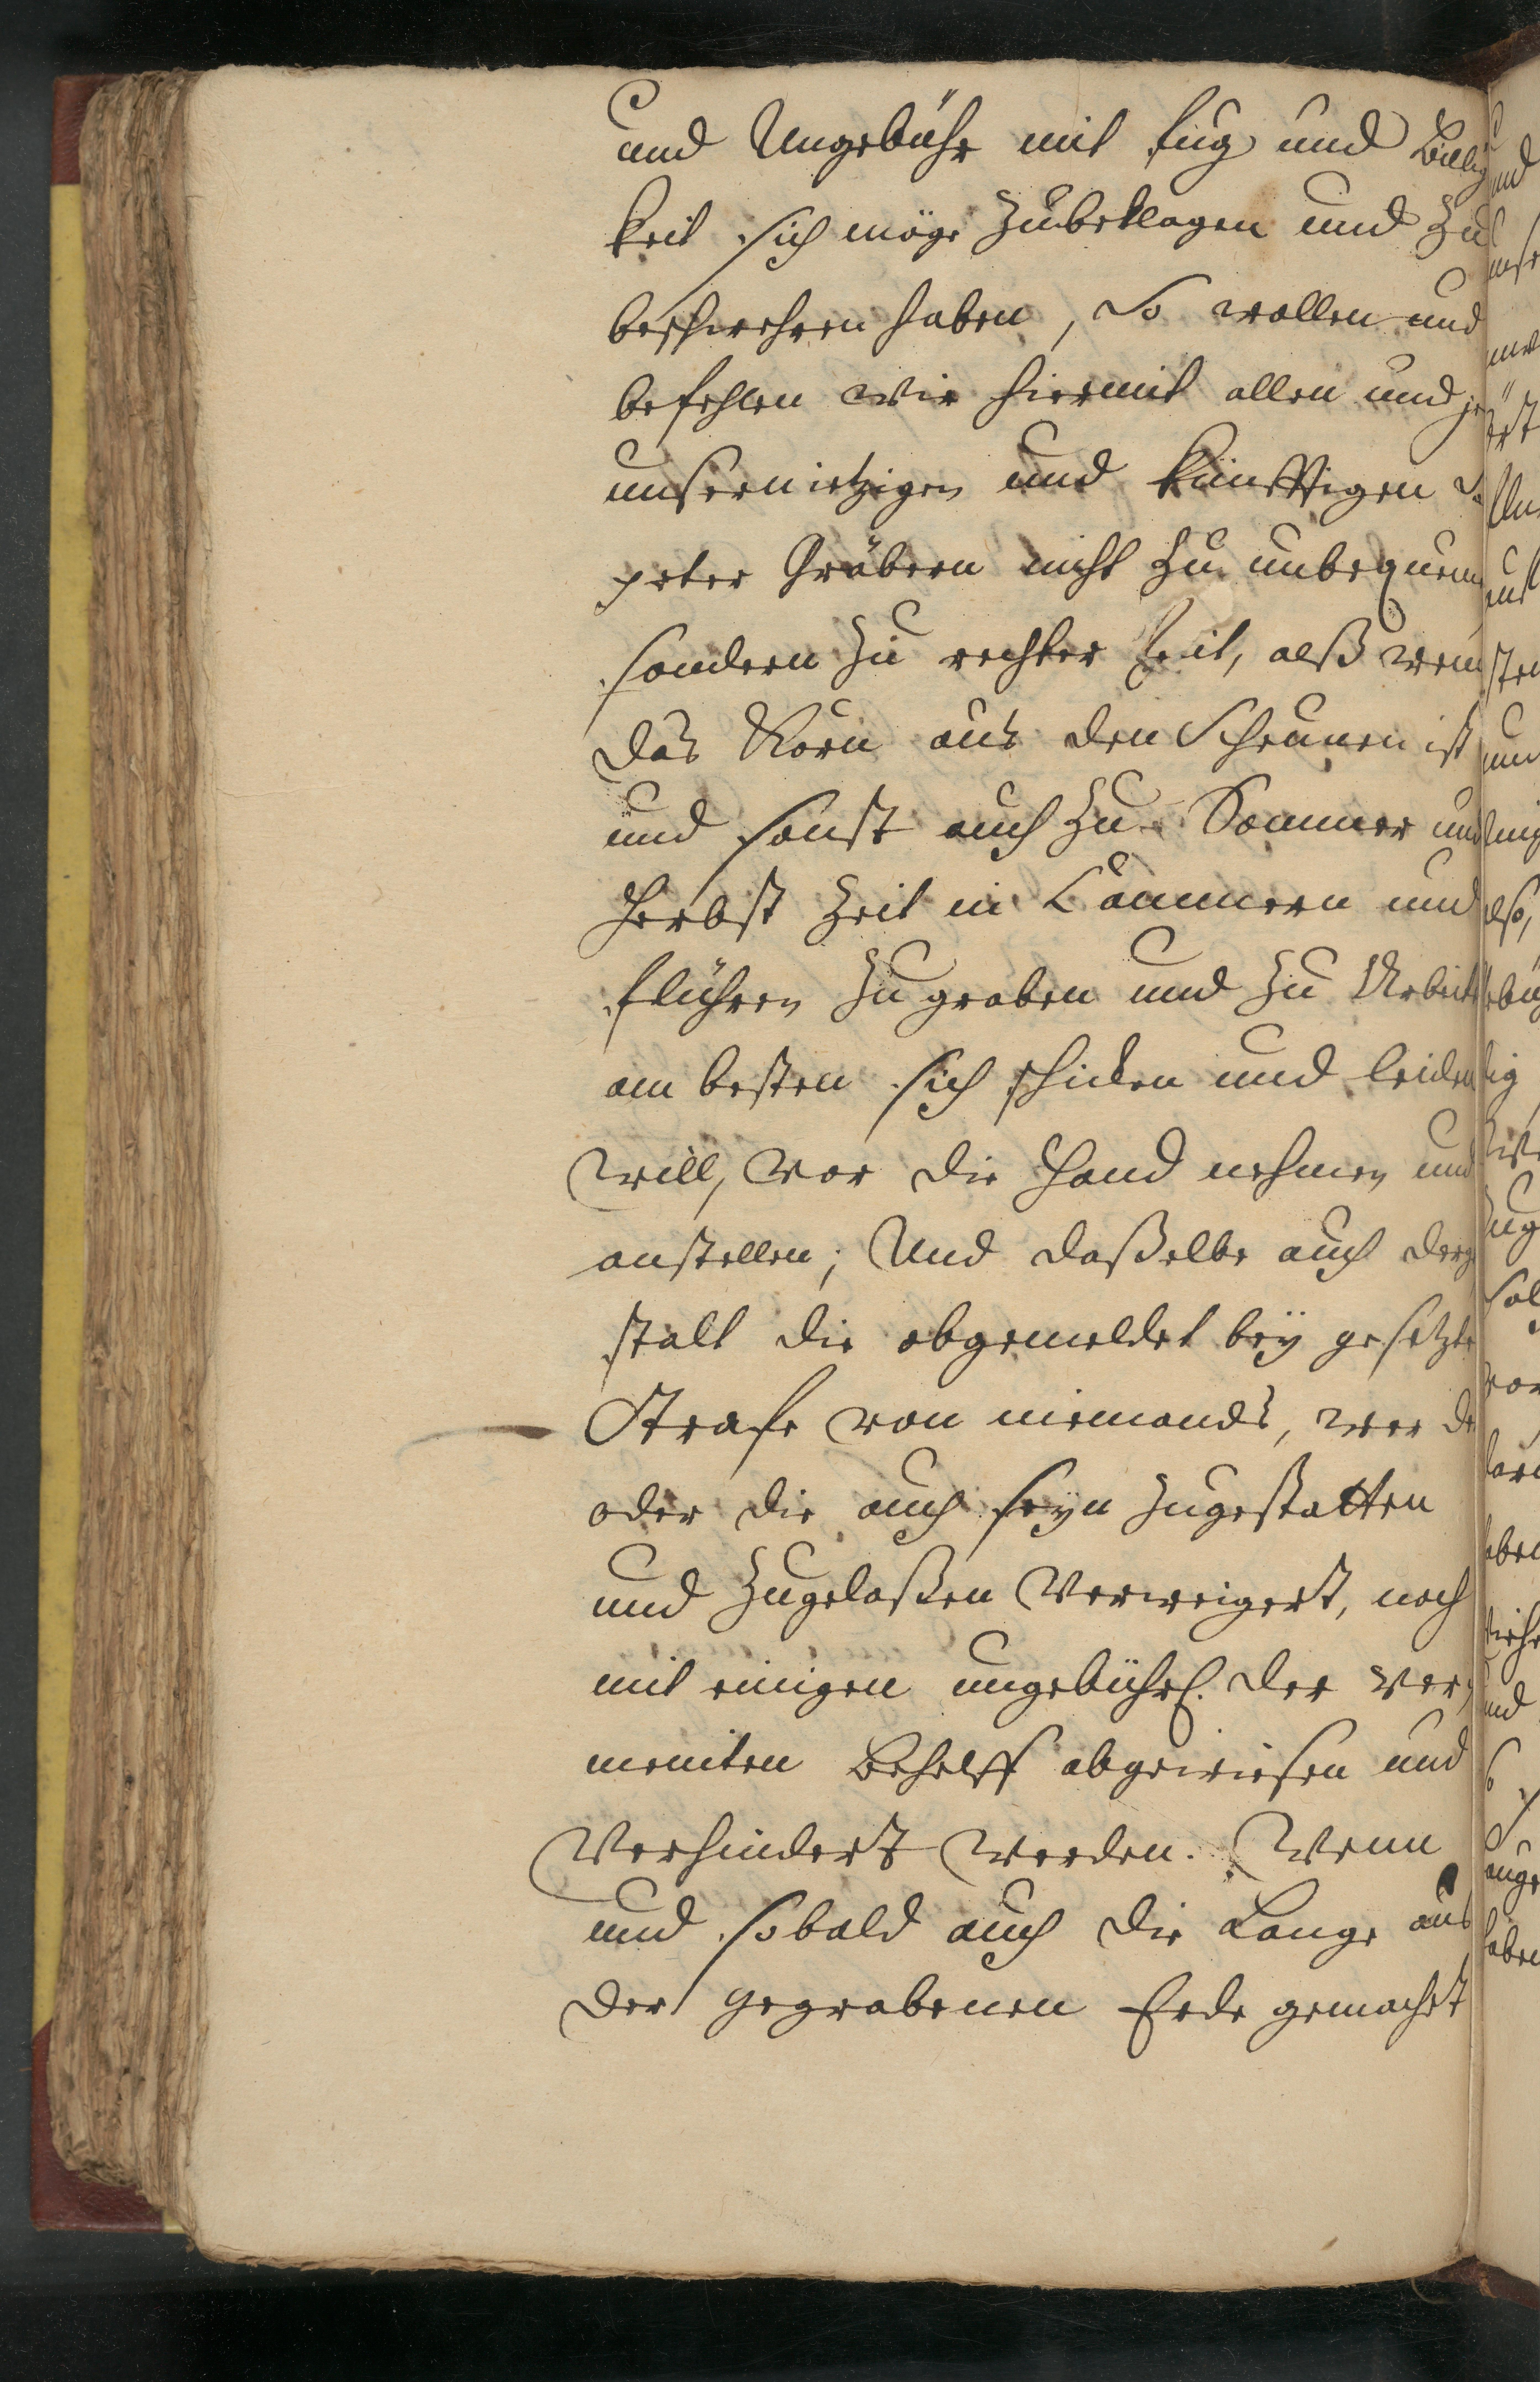 und Ungebühr mit fug und Billig
keit sich möge Zubeklagen und Zu
beschwehren haben, So wollen und
befehlen wir hiermit allen und je
unsern ietzigen und künfftigen Sal
peter Gräbern nicht Zu unbequem
sondern Zu rechter Zeit, alß wenn
das Korn aus den Scheunen ist
und sonst auch Zu Sommer und
Herbst Zeit in Cammern und
flühren Zu graben und Zu Arbeite
am besten sich schicken und leiden
will, vor die Hand nehmen und
anstellen; Und daßelbe auch derge
stalt die obgemeldet bey gesetzte
Strafe von niemands, wer der
oder die auch seyn Zugestatten
und Zugelaßen Verweigert, noch
mit einigen ungebührl. der ver,
meinten Behelff abgewiesen und
Verhindert werden. Wenn
und sobald auch die Lauge aus
der gegrabenen Erde gemacht